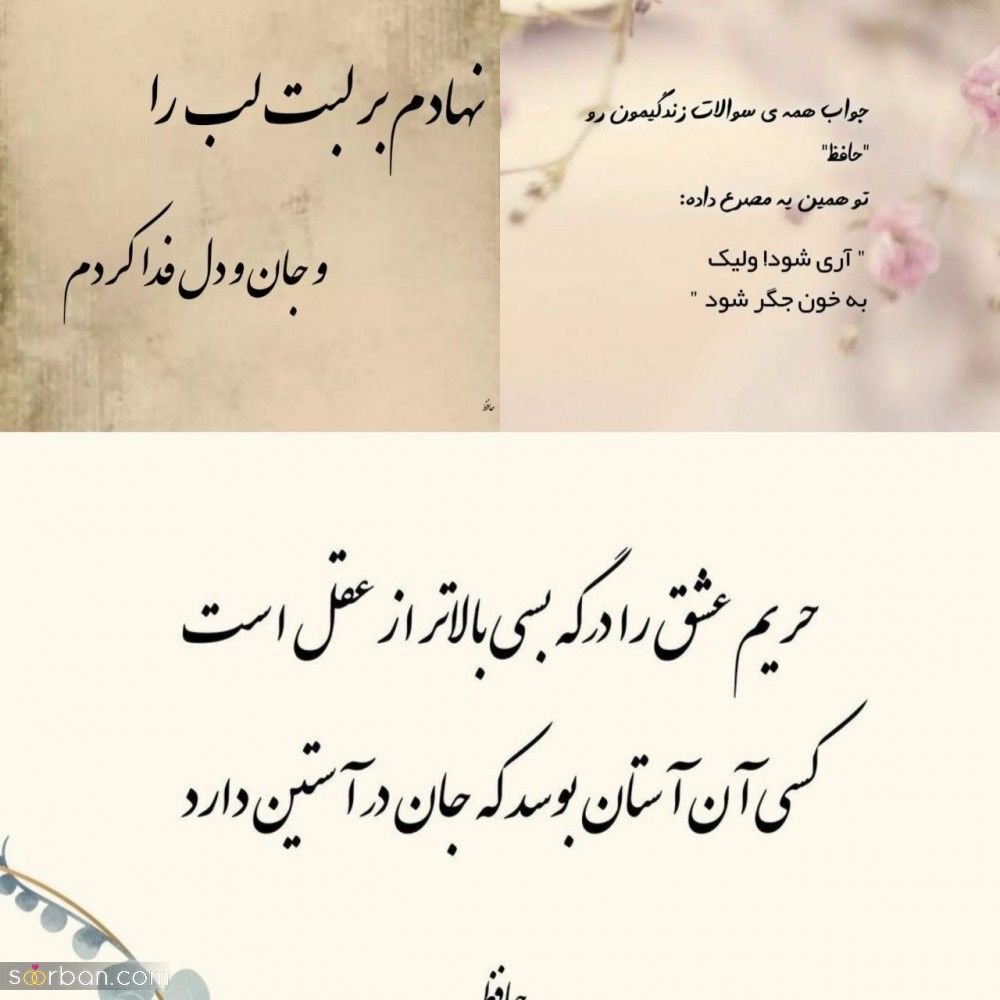 نهادم بر لبت لب را
و جان و دل فدا کردم
حافظ
جواب همه ی سوالات زندگیمون رو
"حافظ"
تو همین یه مصرع داده:
" آری شود! ولیک
به خون جگر شود "
حریم عشق را درگه بسی بالاتر از عقل است
کسی آن آستان بوسد که جان در آستین دارد
حافظ
soorban.com